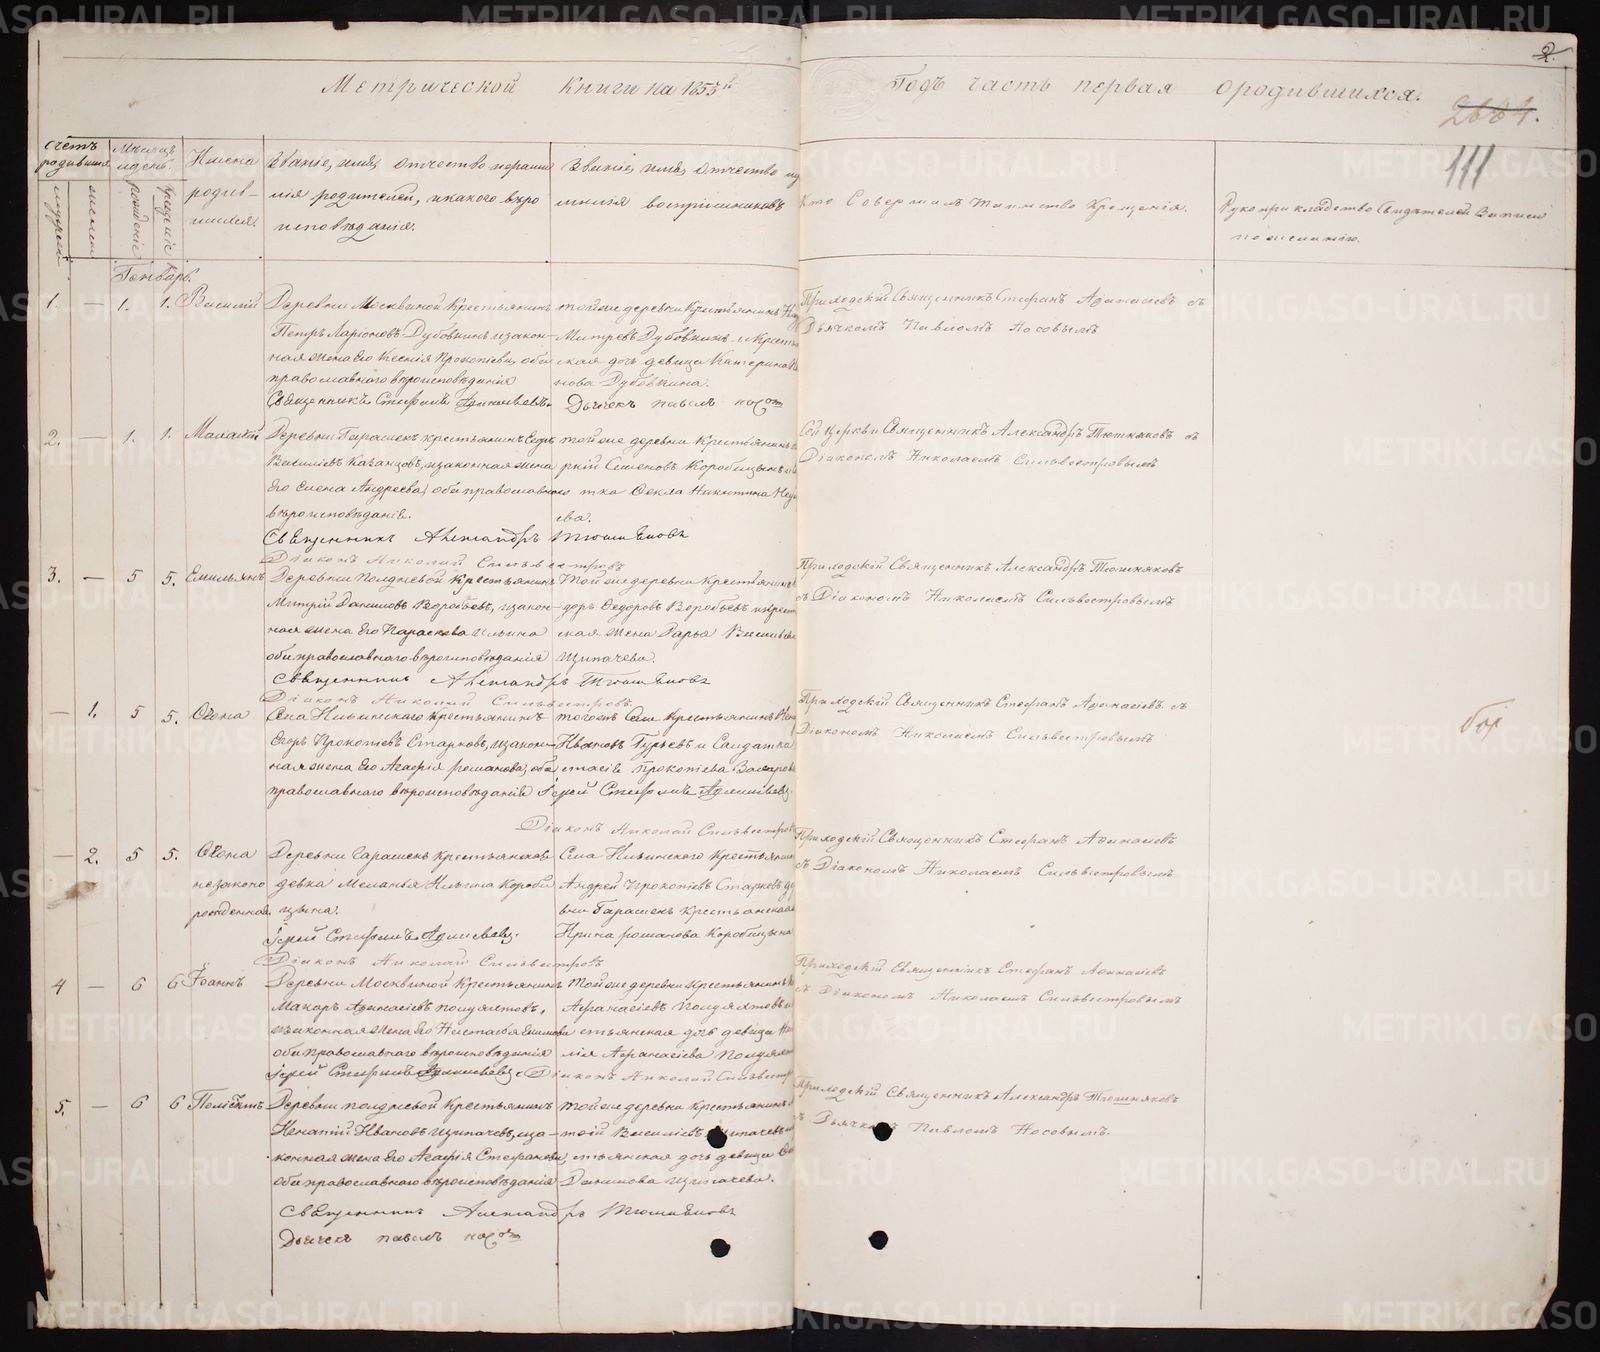 Метрической Книги на 1855й
Годъ часть первая ородившихся.
2.
2664.
111
счетъ родивши
мужеск
женска
Мѣсяцъ идень.
рожденіе
крещеніе
Имена
родив-
шихся.
Званіе, имя, отчество ифами
лія родителей, икакого вѣро
исповѣданія.
Званіе, имя, отчество иф
милія воспріемниковъ
Кто Совершилъ Таинство Крещенія.
Рукоприкладство Свидѣтелей Записи
пожеланію.
Генварь.
1. — 1. 1. Василій
Деревни Москвиной Крестьянинъ
Петръ Ларіоновъ Дубовкинъ изакон-
ная жена Его Ксенія Прокопіева, оба
православнаго вѣроисповѣданія
Священникъ Стефанъ Адамиевъ
тойже деревни Крестьянинъ
Митревъ Дубовкинъ и Кресть
ская дочь девица Катерина
нова Дубовкина.
Дьячекъ павелъ носов
Приходскій Священникъ Стефанъ Аѳанасіевъ съ
Дьячкомъ Павломъ Носовымъ
2. — 1. 1. Малахій
Деревни Гарашекъ крестьянинъ Егоръ
Василіевъ Казанцовъ, изаконная жена
Его Елена Андреева, оба православнаго
вѣроисповѣданія.
Священникъ Александръ Тюшняковъ
Діаконъ Николай Сильвестровъ
тойже деревни Крестьянинъ
ркій Семеновъ Коробицынъ и
тка Ѳекла Никитина
ева.
Сей церкви Священникъ Александръ Тюшняковъ съ
Діакономъ Николаемъ Сильвестровымъ
3. — 5 5. Емильянъ
Деревни полдневой Крестьянинъ
Митрій Даниловъ Воробьевъ, изакон-
ная жена Его Параскева Ильина
оба православнаго вѣроисповѣданія
Священникъ Александръ Тюшняковъ
Діаконъ Николай Сильвестровъ.
Тойже деревни Крестьянинъ
доръ Ѳедоровъ Воробьевъ икрест
ская жена Дарья Василье
Щипачева.
Приходскій Священникъ Александръ Тюшняковъ
съ Діакономъ Николаемъ Сильвестровымъ
— 1. 5 5. Ѳеона
Села Ильинскаго крестьянинъ
Егоръ Прокопіевъ Старковъ, изакон-
ная жена Его Агафія романова, оба
православнаго вѣроисповѣданія
Іерей Стефанъ Адамиевъ.
Діаконъ Николай Сильвестров
тогожъ Села Крестьянинъ
Ивановъ Гурьевъ и Салдатка
стасія прокопіева
Приходскій Священникъ Стефанъ Аѳанасіевъ съ
Діакономъ Николаемъ Сильвестровымъ
— 2. 5 5. Ѳеона
незаконо
рожденная.
Деревни Гарашекъ крестьянская
девка Меланья Ильина Короби
цына.
Іерей Стефанъ Адамиевъ.
Діаконъ Николай Сильвестровъ
Села Ильинского Крестьянин
Андрей Прокопіевъ Старковъ де
вни Гарашекъ Крестьянская
Ирина романова Коробицына
Приходскій Священникъ Стефанъ Аѳанасіевъ
съ Діакономъ Николаемъ Сильвестровымъ
4 — 6 6 Іоаннъ
Деревни Москвиной Крестьянинъ
Макаръ Аѳанасіевъ полуяхтовъ,
изаконная жена Его Настасья Екимова
оба православнаго вѣроисповѣданія
Іерей Стефанъ Адамиевъ Діаконъ Николай Сильвестр
Тойже деревни Крестьянинъ
Афанасіевъ Полуяхтовъ
стьянская дочь девица
лія Афанасіева Полуях
Приходскій Священникъ Стефанъ Аѳанасіевъ
съ Діакономъ Николаемъ Сильвестровымъ
5. — 6 6 Полієктъ
Деревни полдневой Крестьянинъ
Игнатій Ивановъ щипачевъ, иза-
конная жена Его Агафія Стефанова,
оба православнаго вѣроисповѣданія
Священникъ Александръ Тюшняковъ
Дьячекъ павелъ носов
тойже деревни Крестьянинъ
Василіевъ Щипачевъ
стьянская дочь девица
Данилова щипачева.
Приходскій Священникъ Александръ Тюшняковъ
съ Дьячкомъ Павломъ Носовымъ.
METRIKI.GASO-URAL.RU